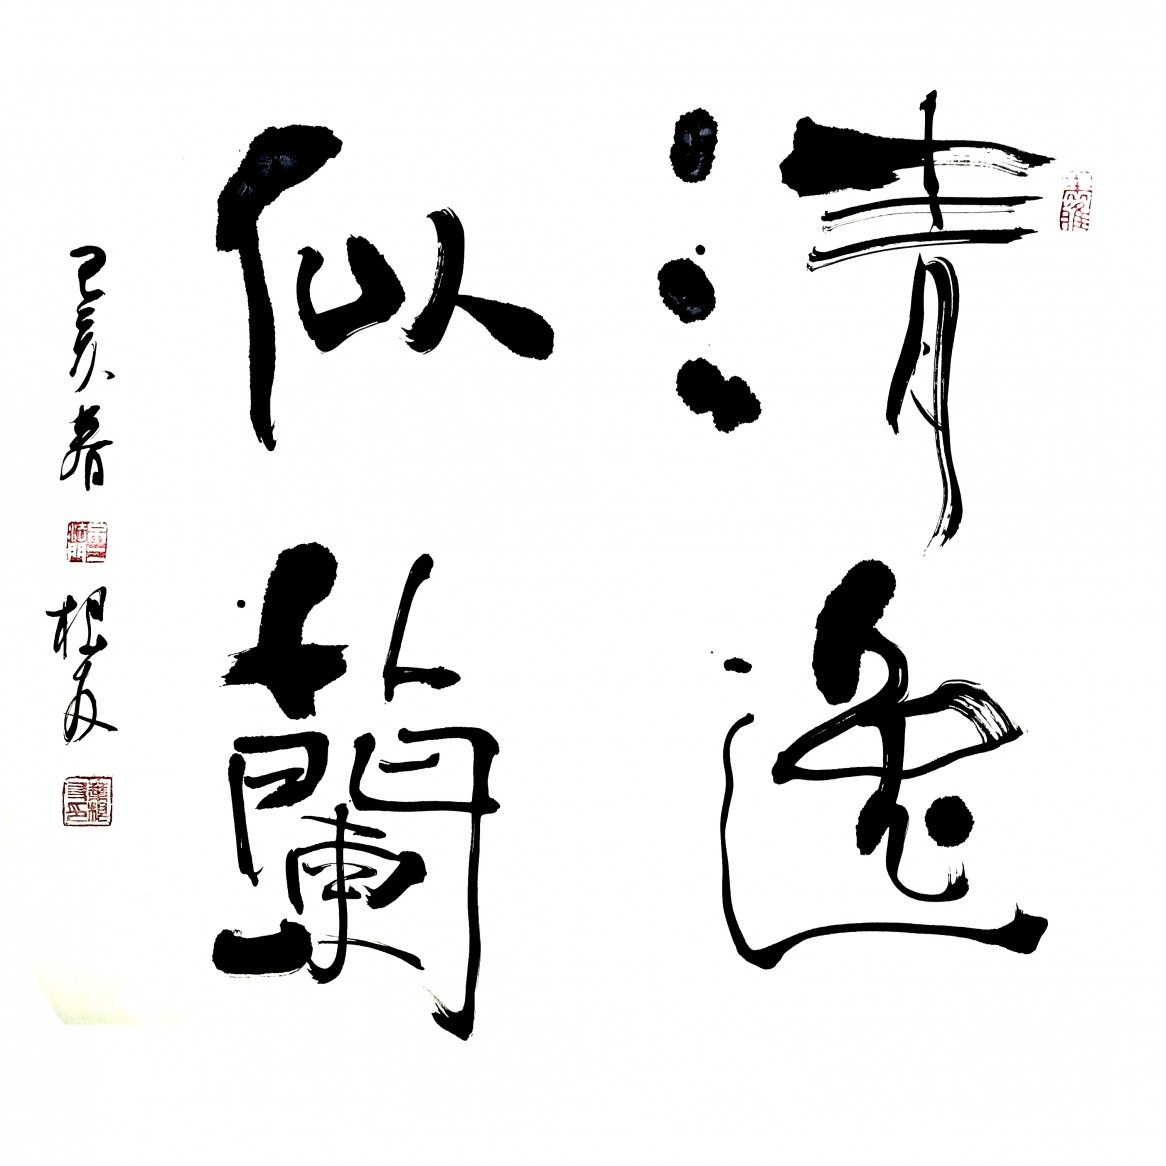 清逸
似蘭
己亥春 根友